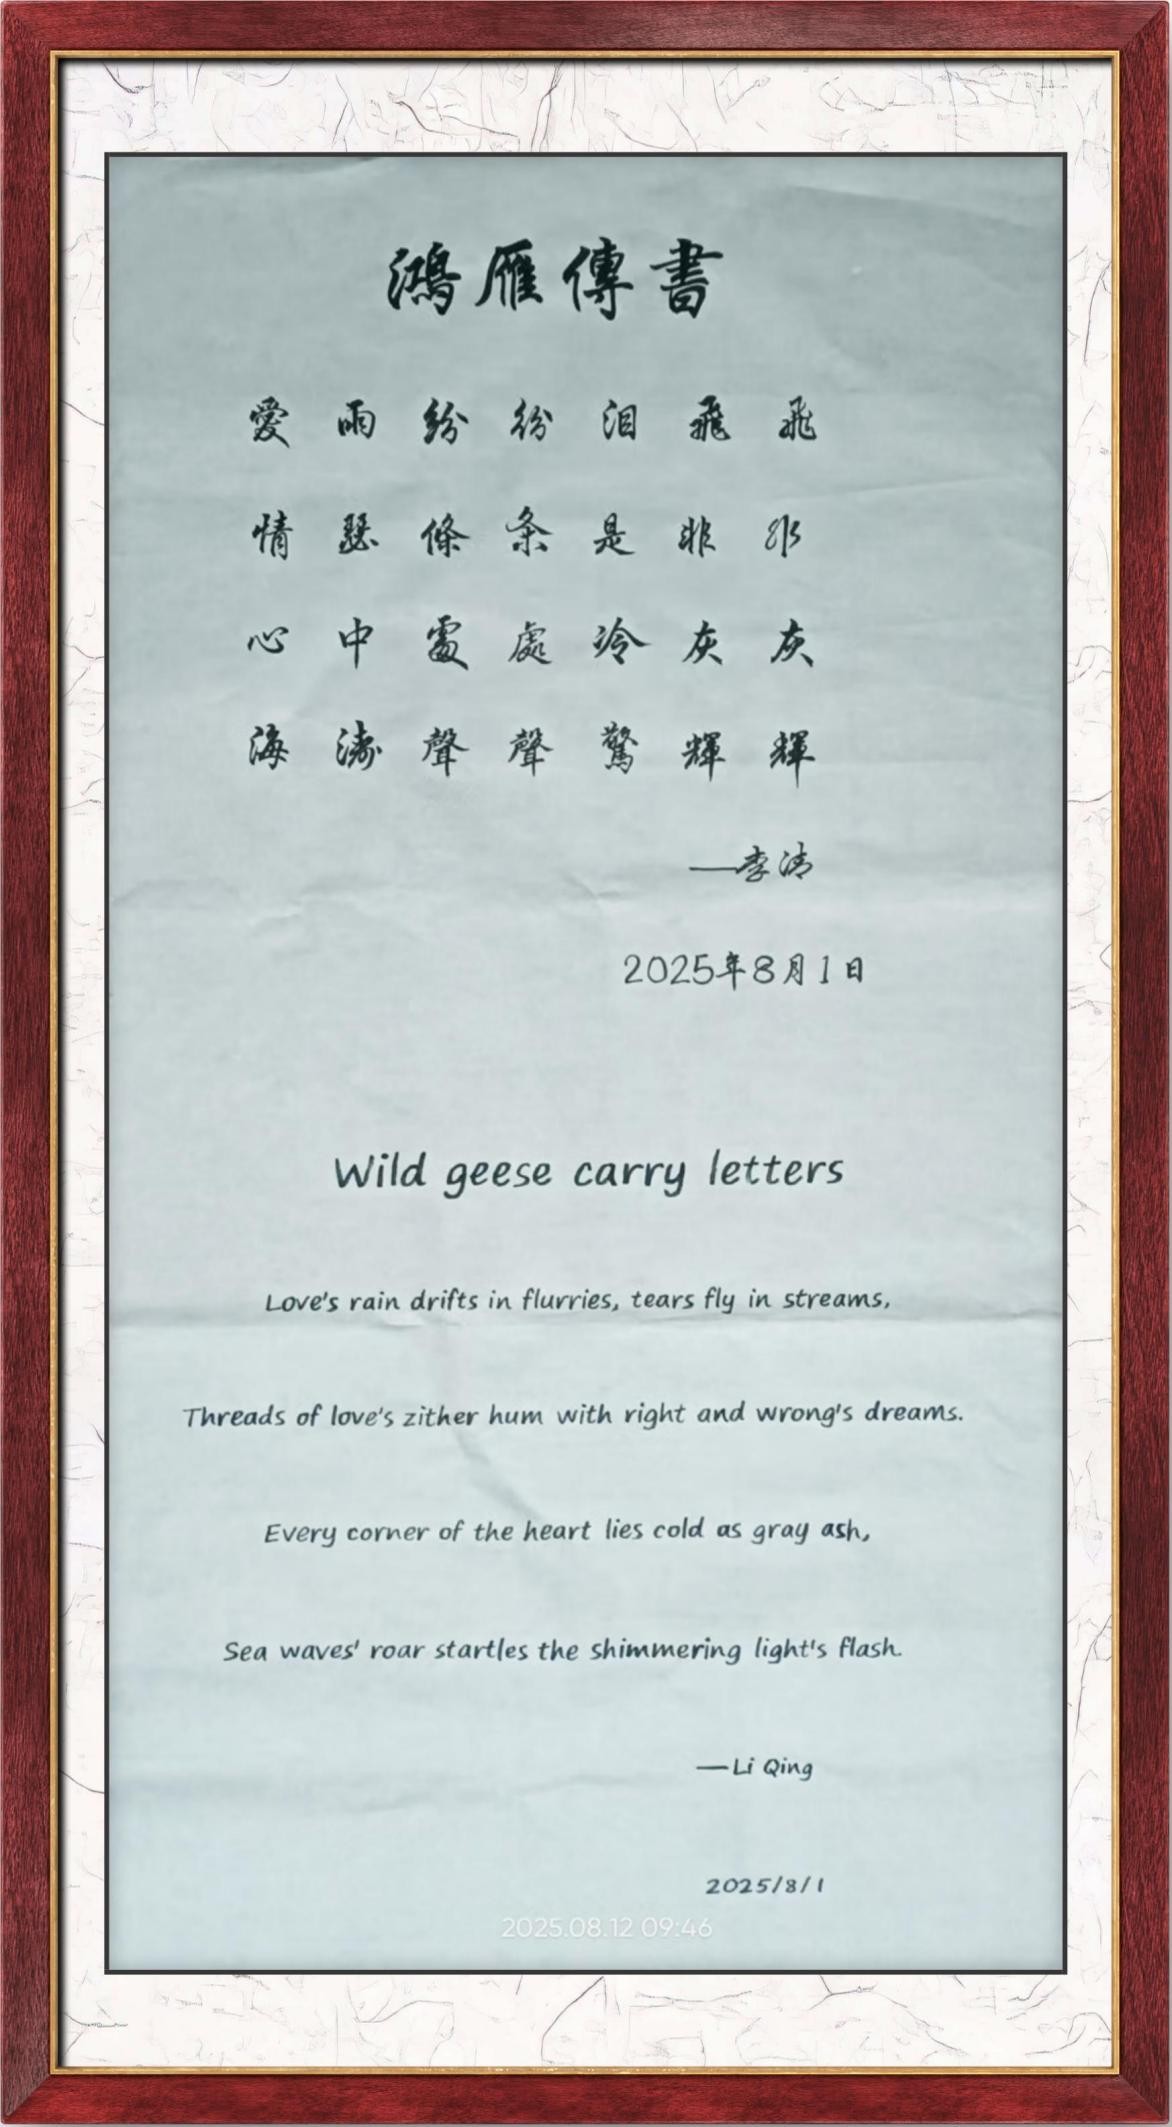 鴻雁傳書
愛雨紛紛泪飛飛
情瑟條条是非非
心中處處冷灰灰
海濤聲聲驚輝輝
—李清
2025年8月1日
Wild geese carry letters
Love's rain drifts in flurries, tears fly in streams,
Threads of love's zither hum with right and wrong's dreams.
Every corner of the heart lies cold as gray ash,
Sea waves' roar startles the shimmering light's flash.
—Li Qing
2025/8/1
2025.08.12 09:46